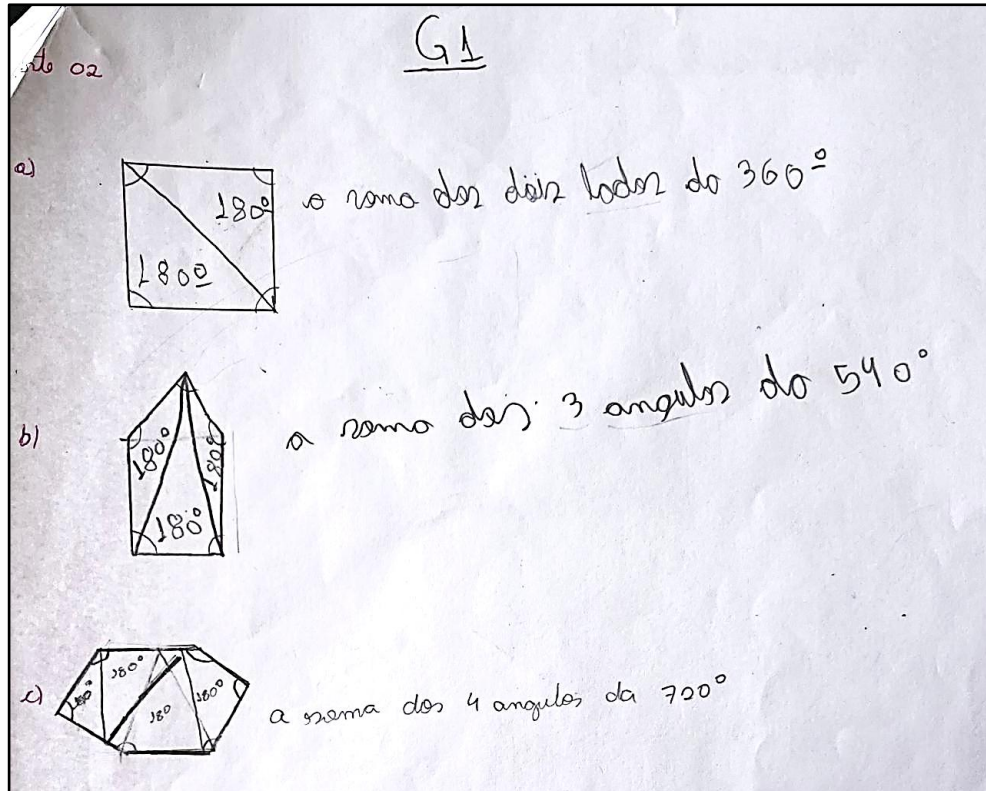 G1
02
a)
180º
180º
a soma dos dois lados da 360º
b)
180°
180°
180°
a soma dos 3 angulos da 540°
c)
180°
180°
180
180°
a soma dos 4 angulos da 720°